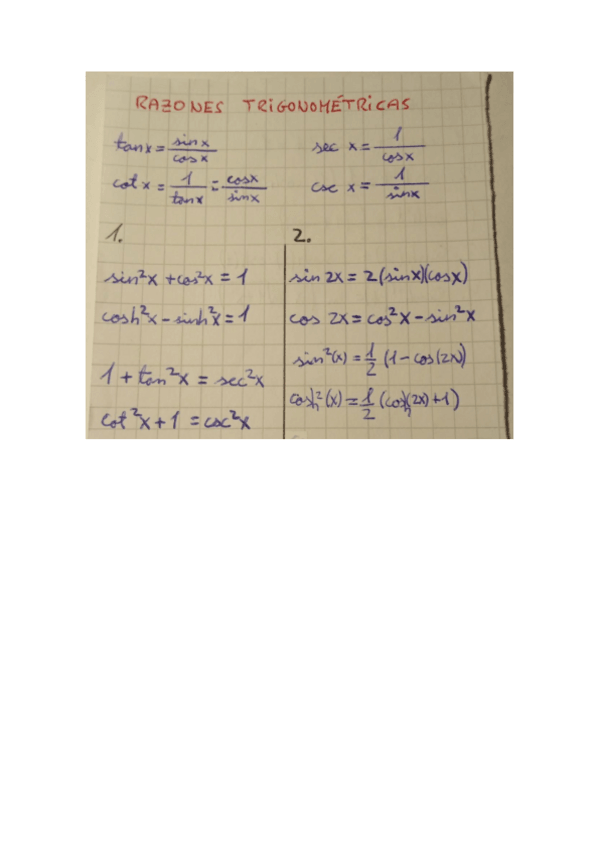 RAZONES TRIGONOMÉTRICAS
tan x = sin x / cos x
sec x = 1 / cos x
cot x = 1 / tan x = cos x / sin x
csc x = 1 / sin x
1.
sin²x + cos²x = 1
cosh²x - sinh²x = 1
1 + tan²x = sec²x
cot²x + 1 = csc²x
2.
sin 2x = 2 (sin x)(cos x)
cos 2x = cos²x - sin²x
sin²(x) = 1/2 (1 - cos(2x))
cosh²(x) = 1/2 (cosh(2x) + 1)